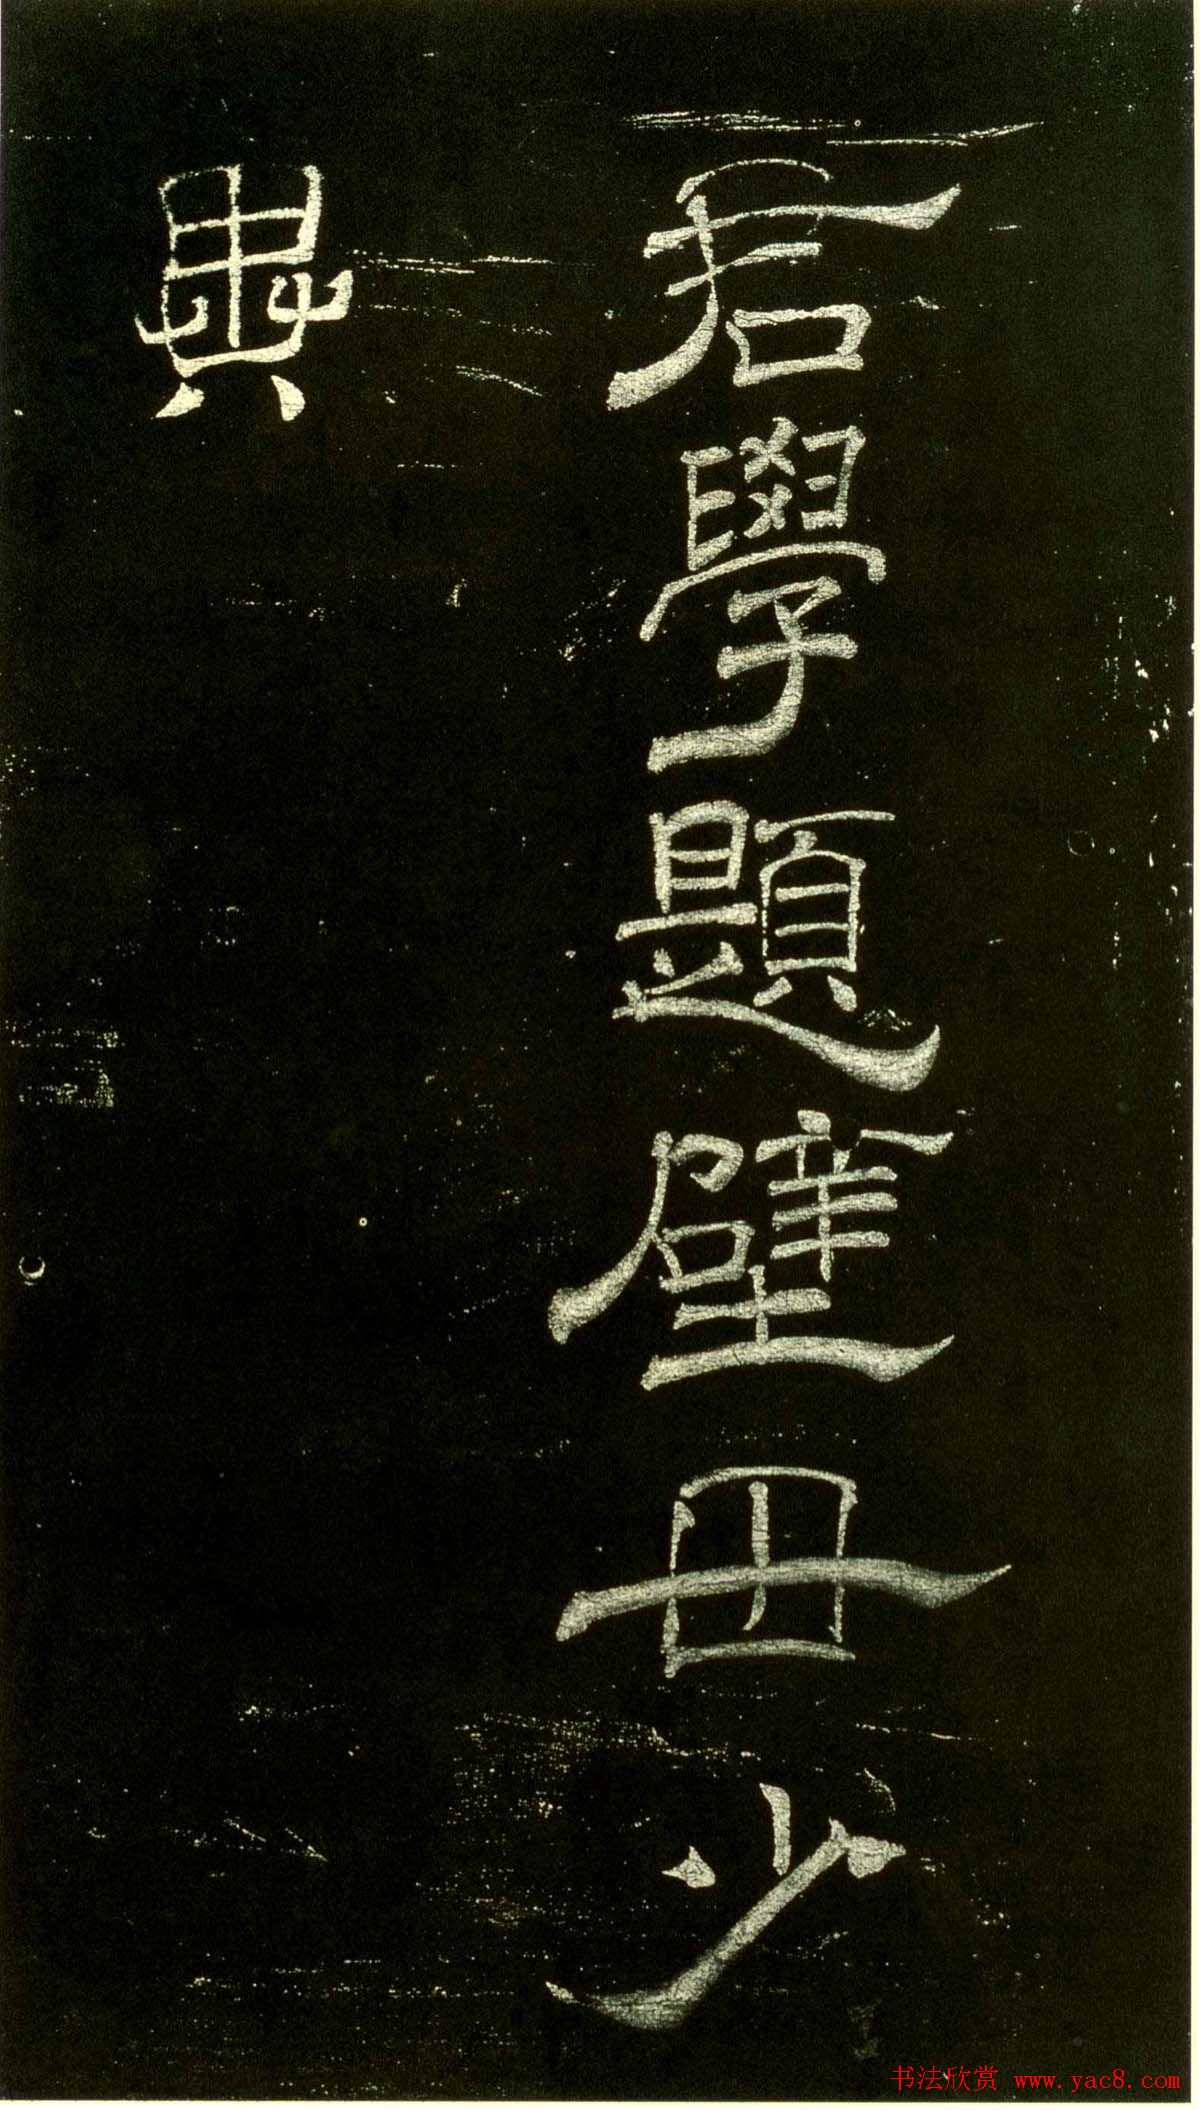 君學題壁毋少
異
书法欣赏 www.yac8.com